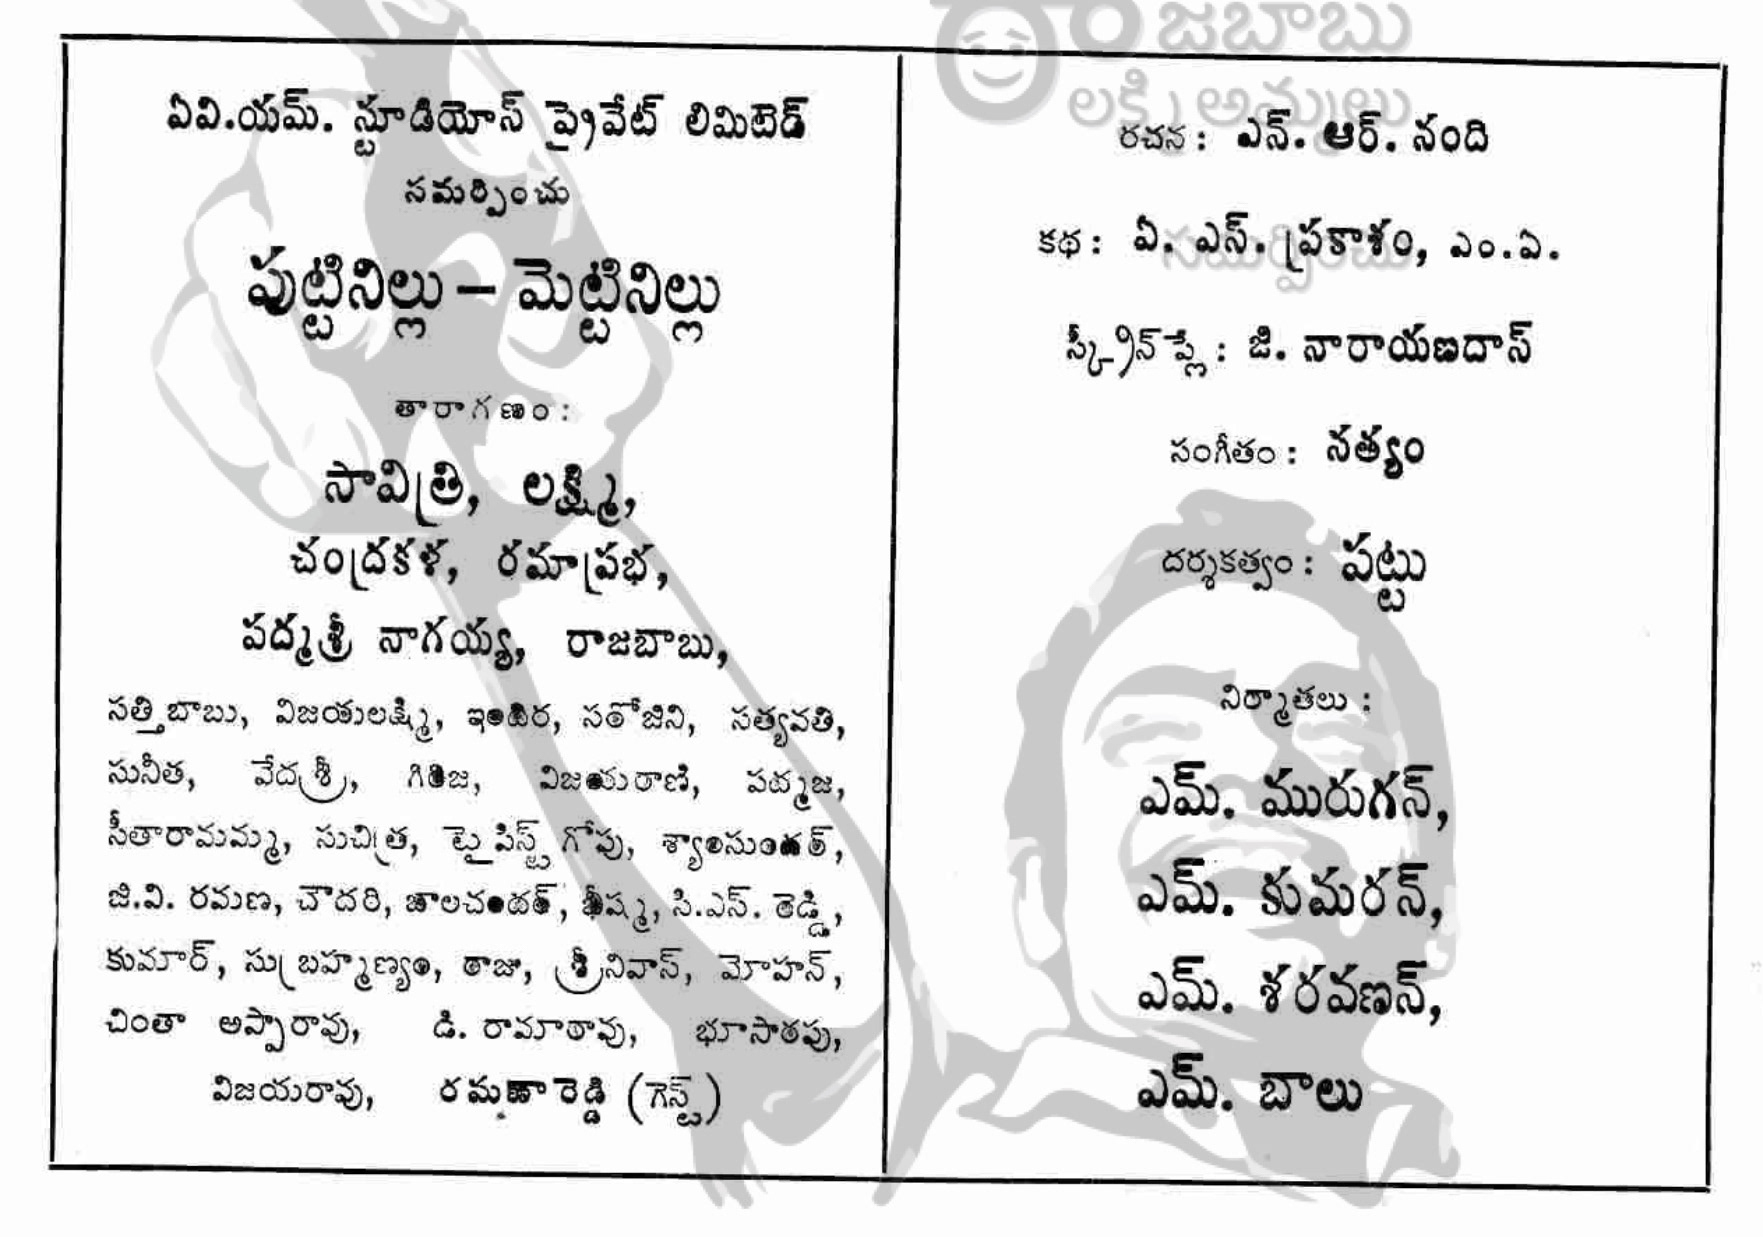 ఏవి.యమ్. స్టూడియోస్ ప్రైవేట్ లిమిటెడ్
సమర్పించు
పుట్టినిల్లు – మెట్టినిల్లు
తారాగణం :
సావిత్రి, లక్ష్మి,
చంద్రకళ, రమాప్రభ,
పద్మశ్రీ నాగయ్య, రాజబాబు,
సత్తిబాబు, విజయలక్ష్మి, ఇందిర, సరోజిని, సత్యవతి,
సునీత, వేదశ్రీ, గిరిజ, విజయరాణి, పద్మజ,
సీతారామమ్మ, సుచిత్ర, టైపిస్ట్ గోపు, శ్యామసుందర్,
జి.వి. రమణ, చౌదరి, బాలచందర్, భీష్మ, సి.ఎస్. రెడ్డి,
కుమార్, సుబ్రహ్మణ్యం, రాజు, శ్రీనివాస్, మోహన్,
చింతా అప్పారావు, డి. రామారావు, భూసారపు,
విజయరావు, రమణారెడ్డి (గెస్ట్)
రాజబాబు
లక్ష్మి అమ్ములు
సమర్పించు
రచన : ఎన్. ఆర్. నంది
కథ : ఏ. ఎస్. ప్రకాశం, ఎం.ఏ.
స్క్రీన్‌ప్లే : జి. నారాయణదాస్
సంగీతం : సత్యం
దర్శకత్వం : పట్టు
నిర్మాతలు :
ఎమ్. మురుగన్,
ఎమ్. కుమరన్,
ఎమ్. శరవణన్,
ఎమ్. బాలు